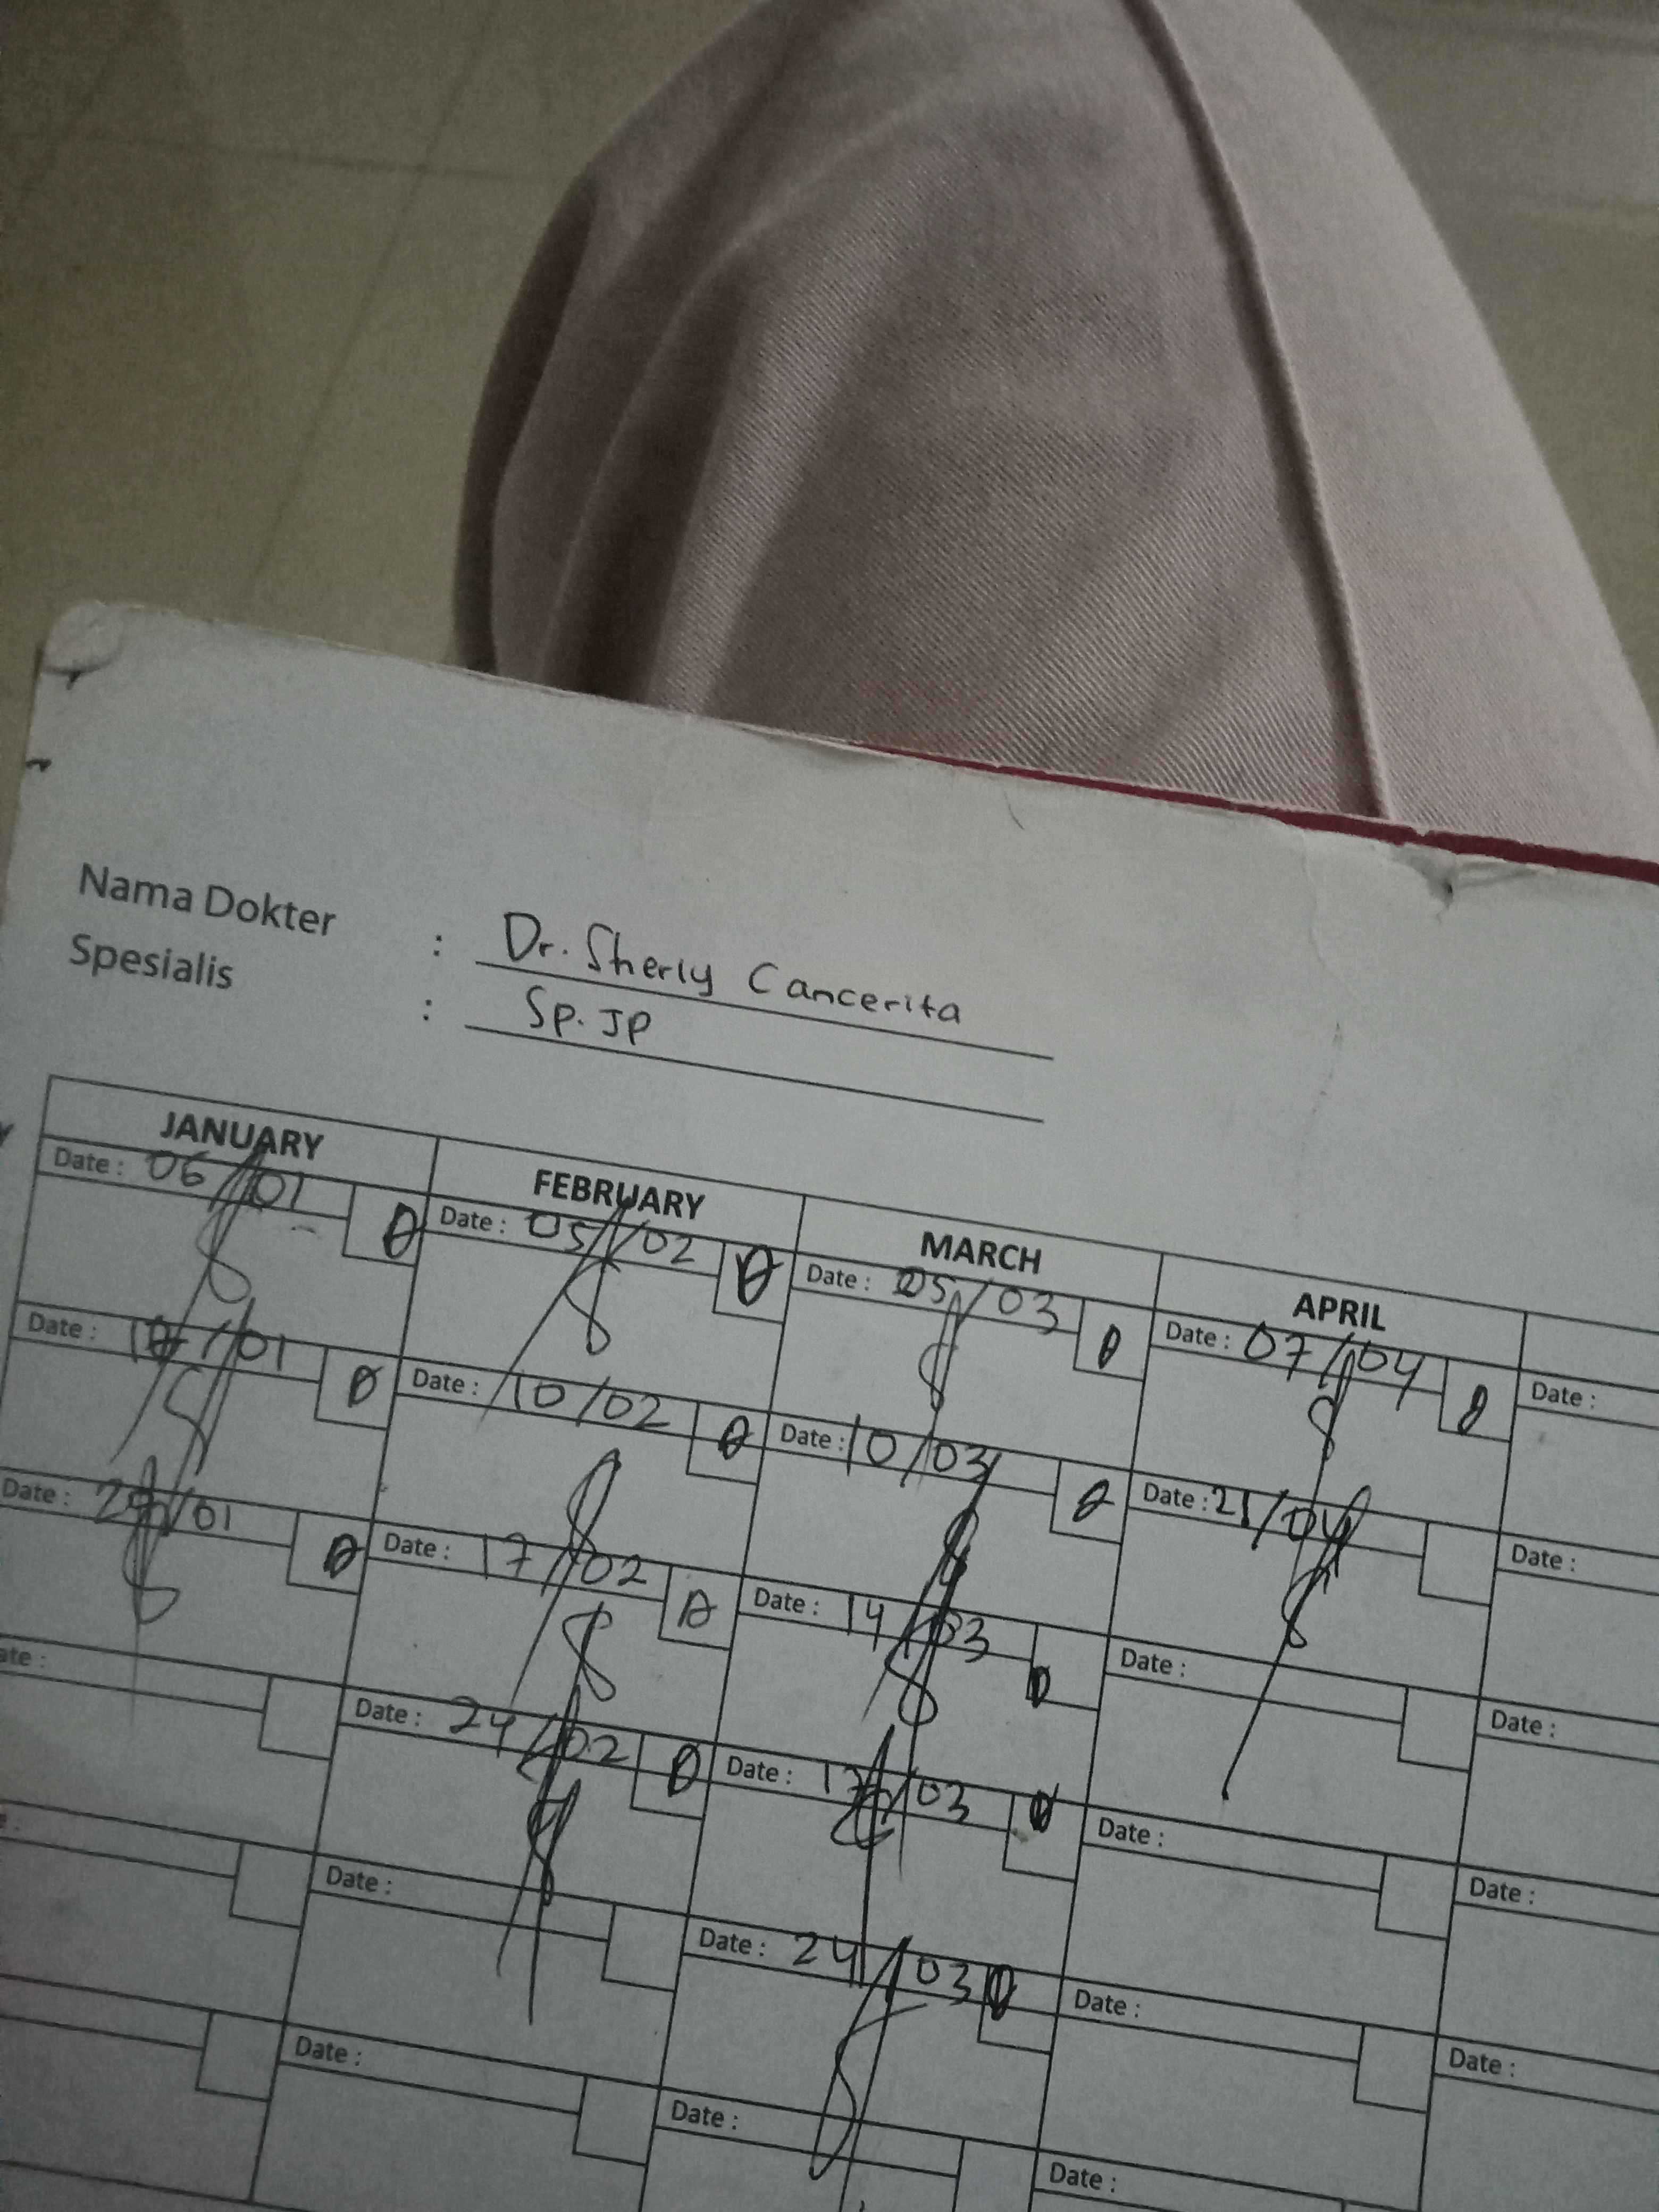 Nama Dokter : Dr. Sherly Cancerita
Spesialis : Sp. JP
JANUARY FEBRUARY MARCH APRIL
Date : 06/01 Date : 05/02 Date : 05/03 Date : 07/04 Date :
Date : /01 Date : 10/02 Date : 10/03 Date : 21/04 Date :
Date : /01 Date : 17/02 Date : 14/03 Date : Date :
Date : 24/02 Date : 17/03 Date : Date :
Date : Date : 24/03 Date : Date :
Date : Date : Date :